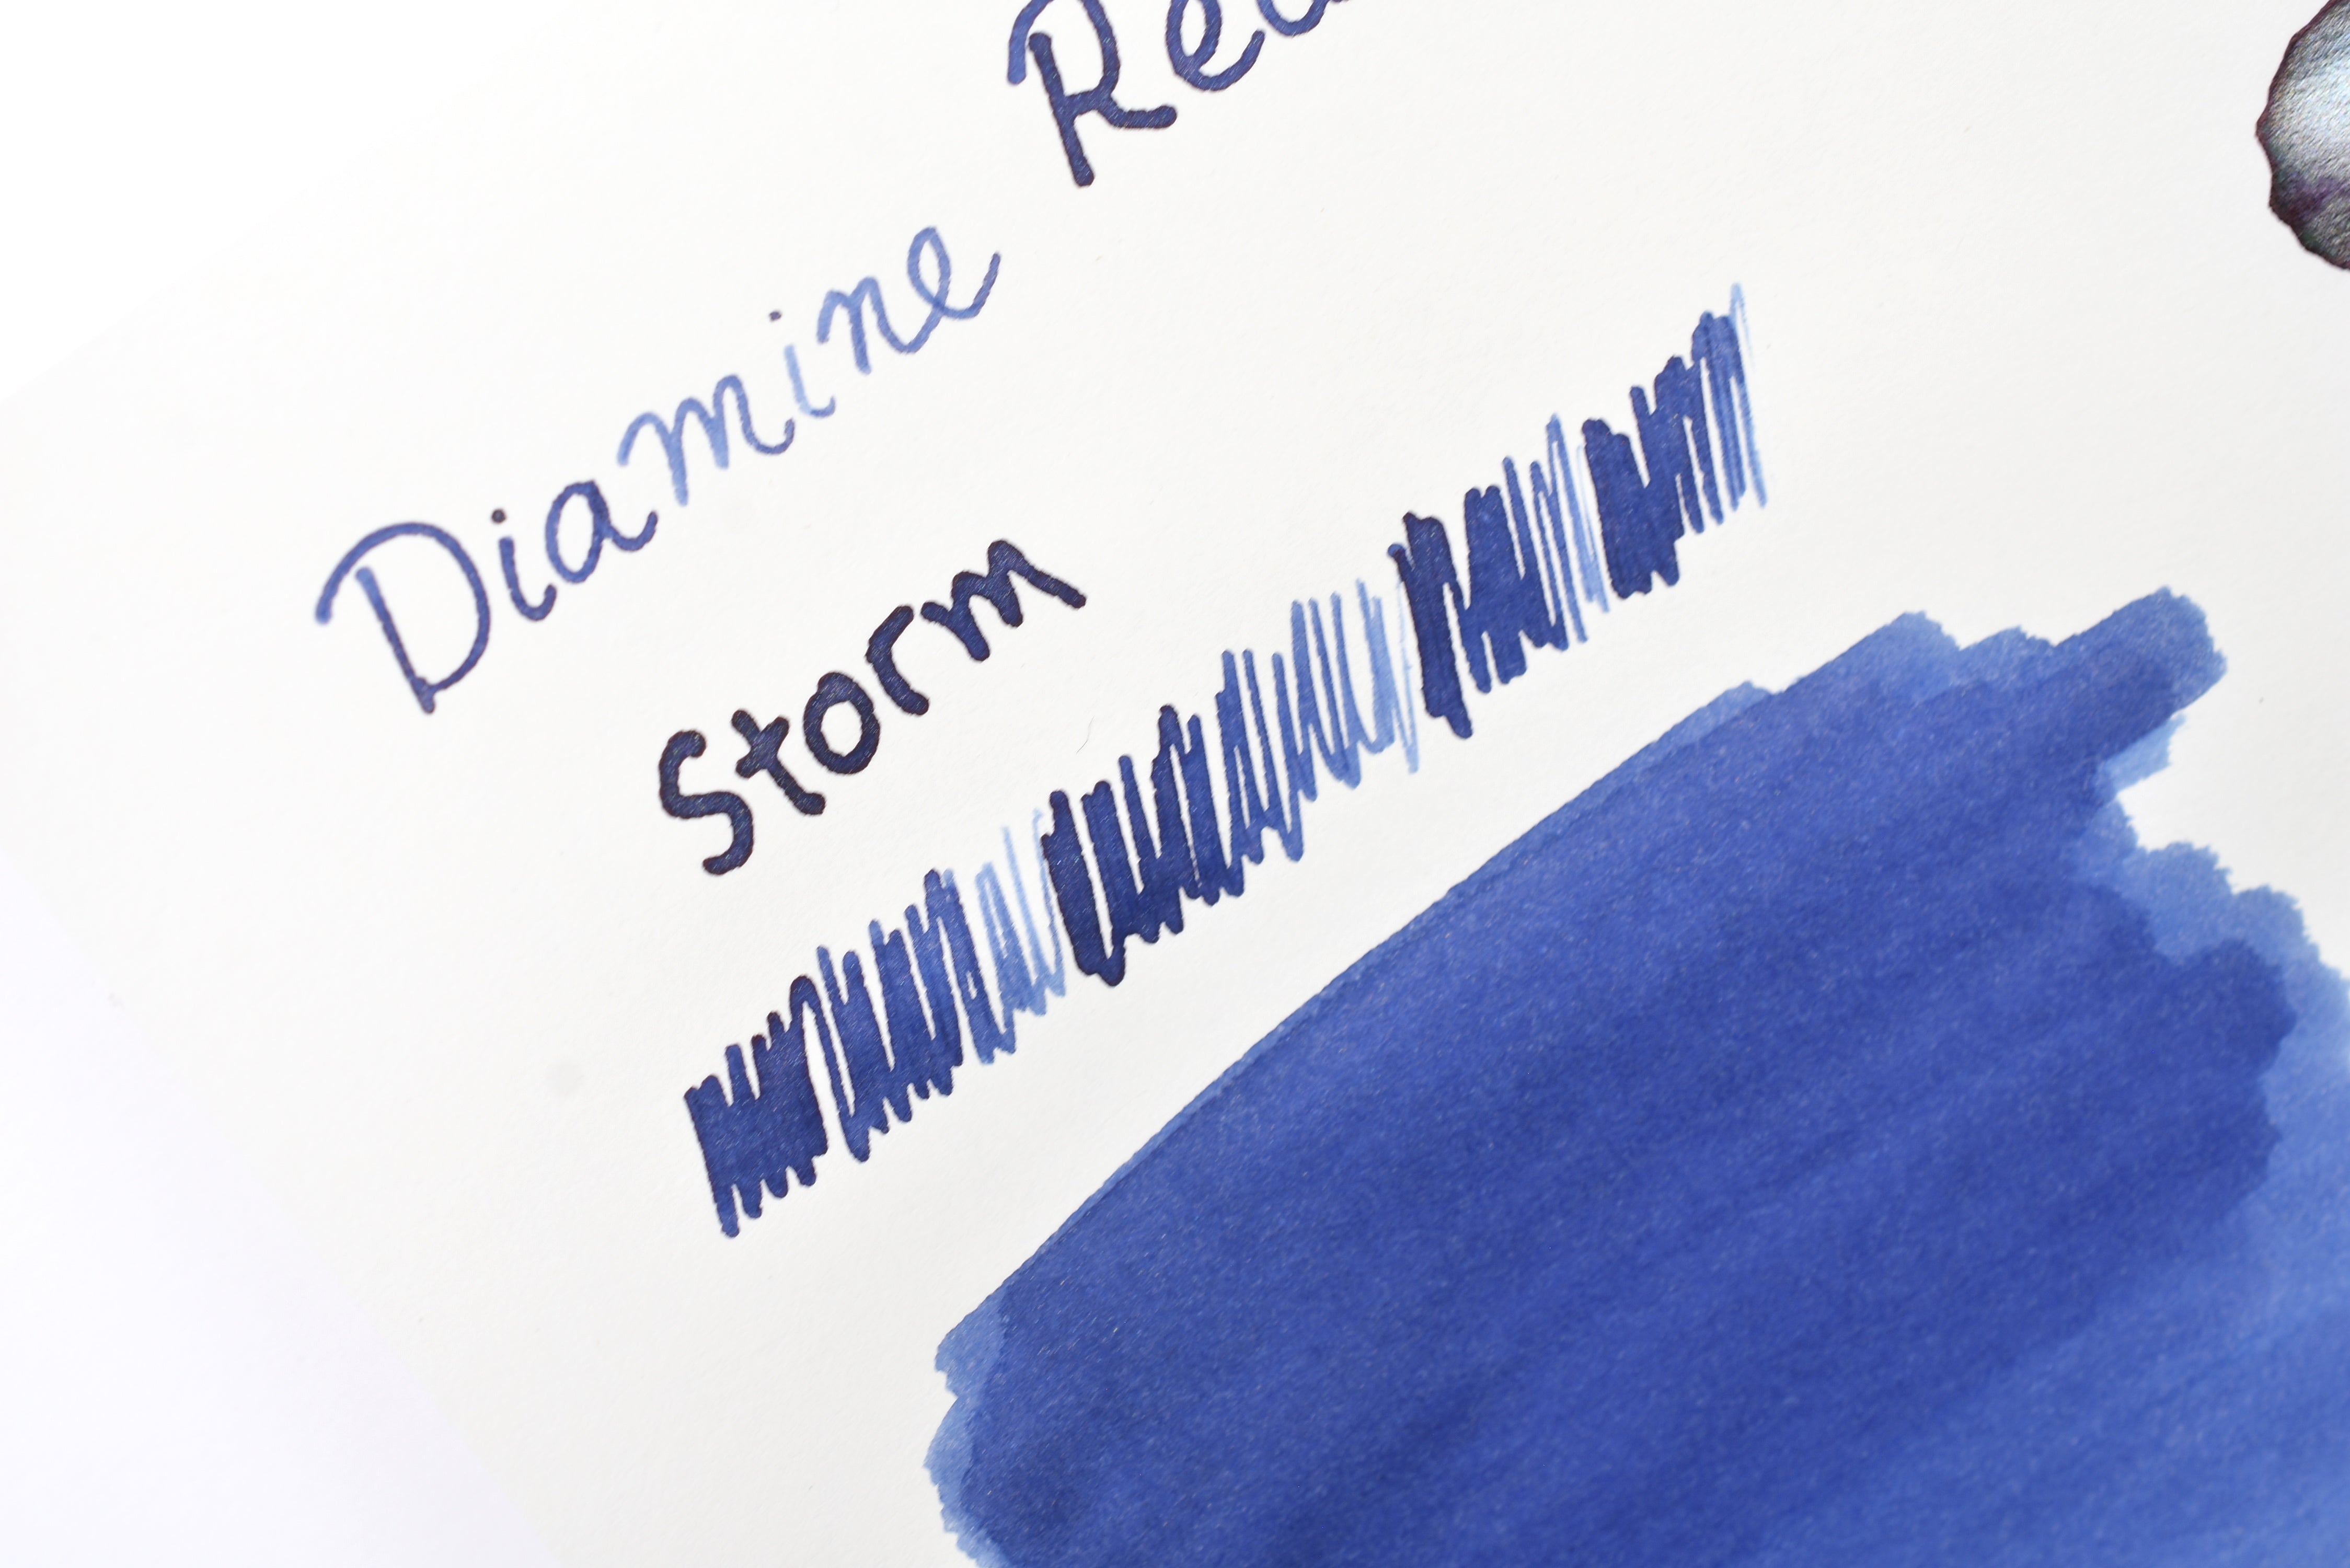 Diamine
Storm